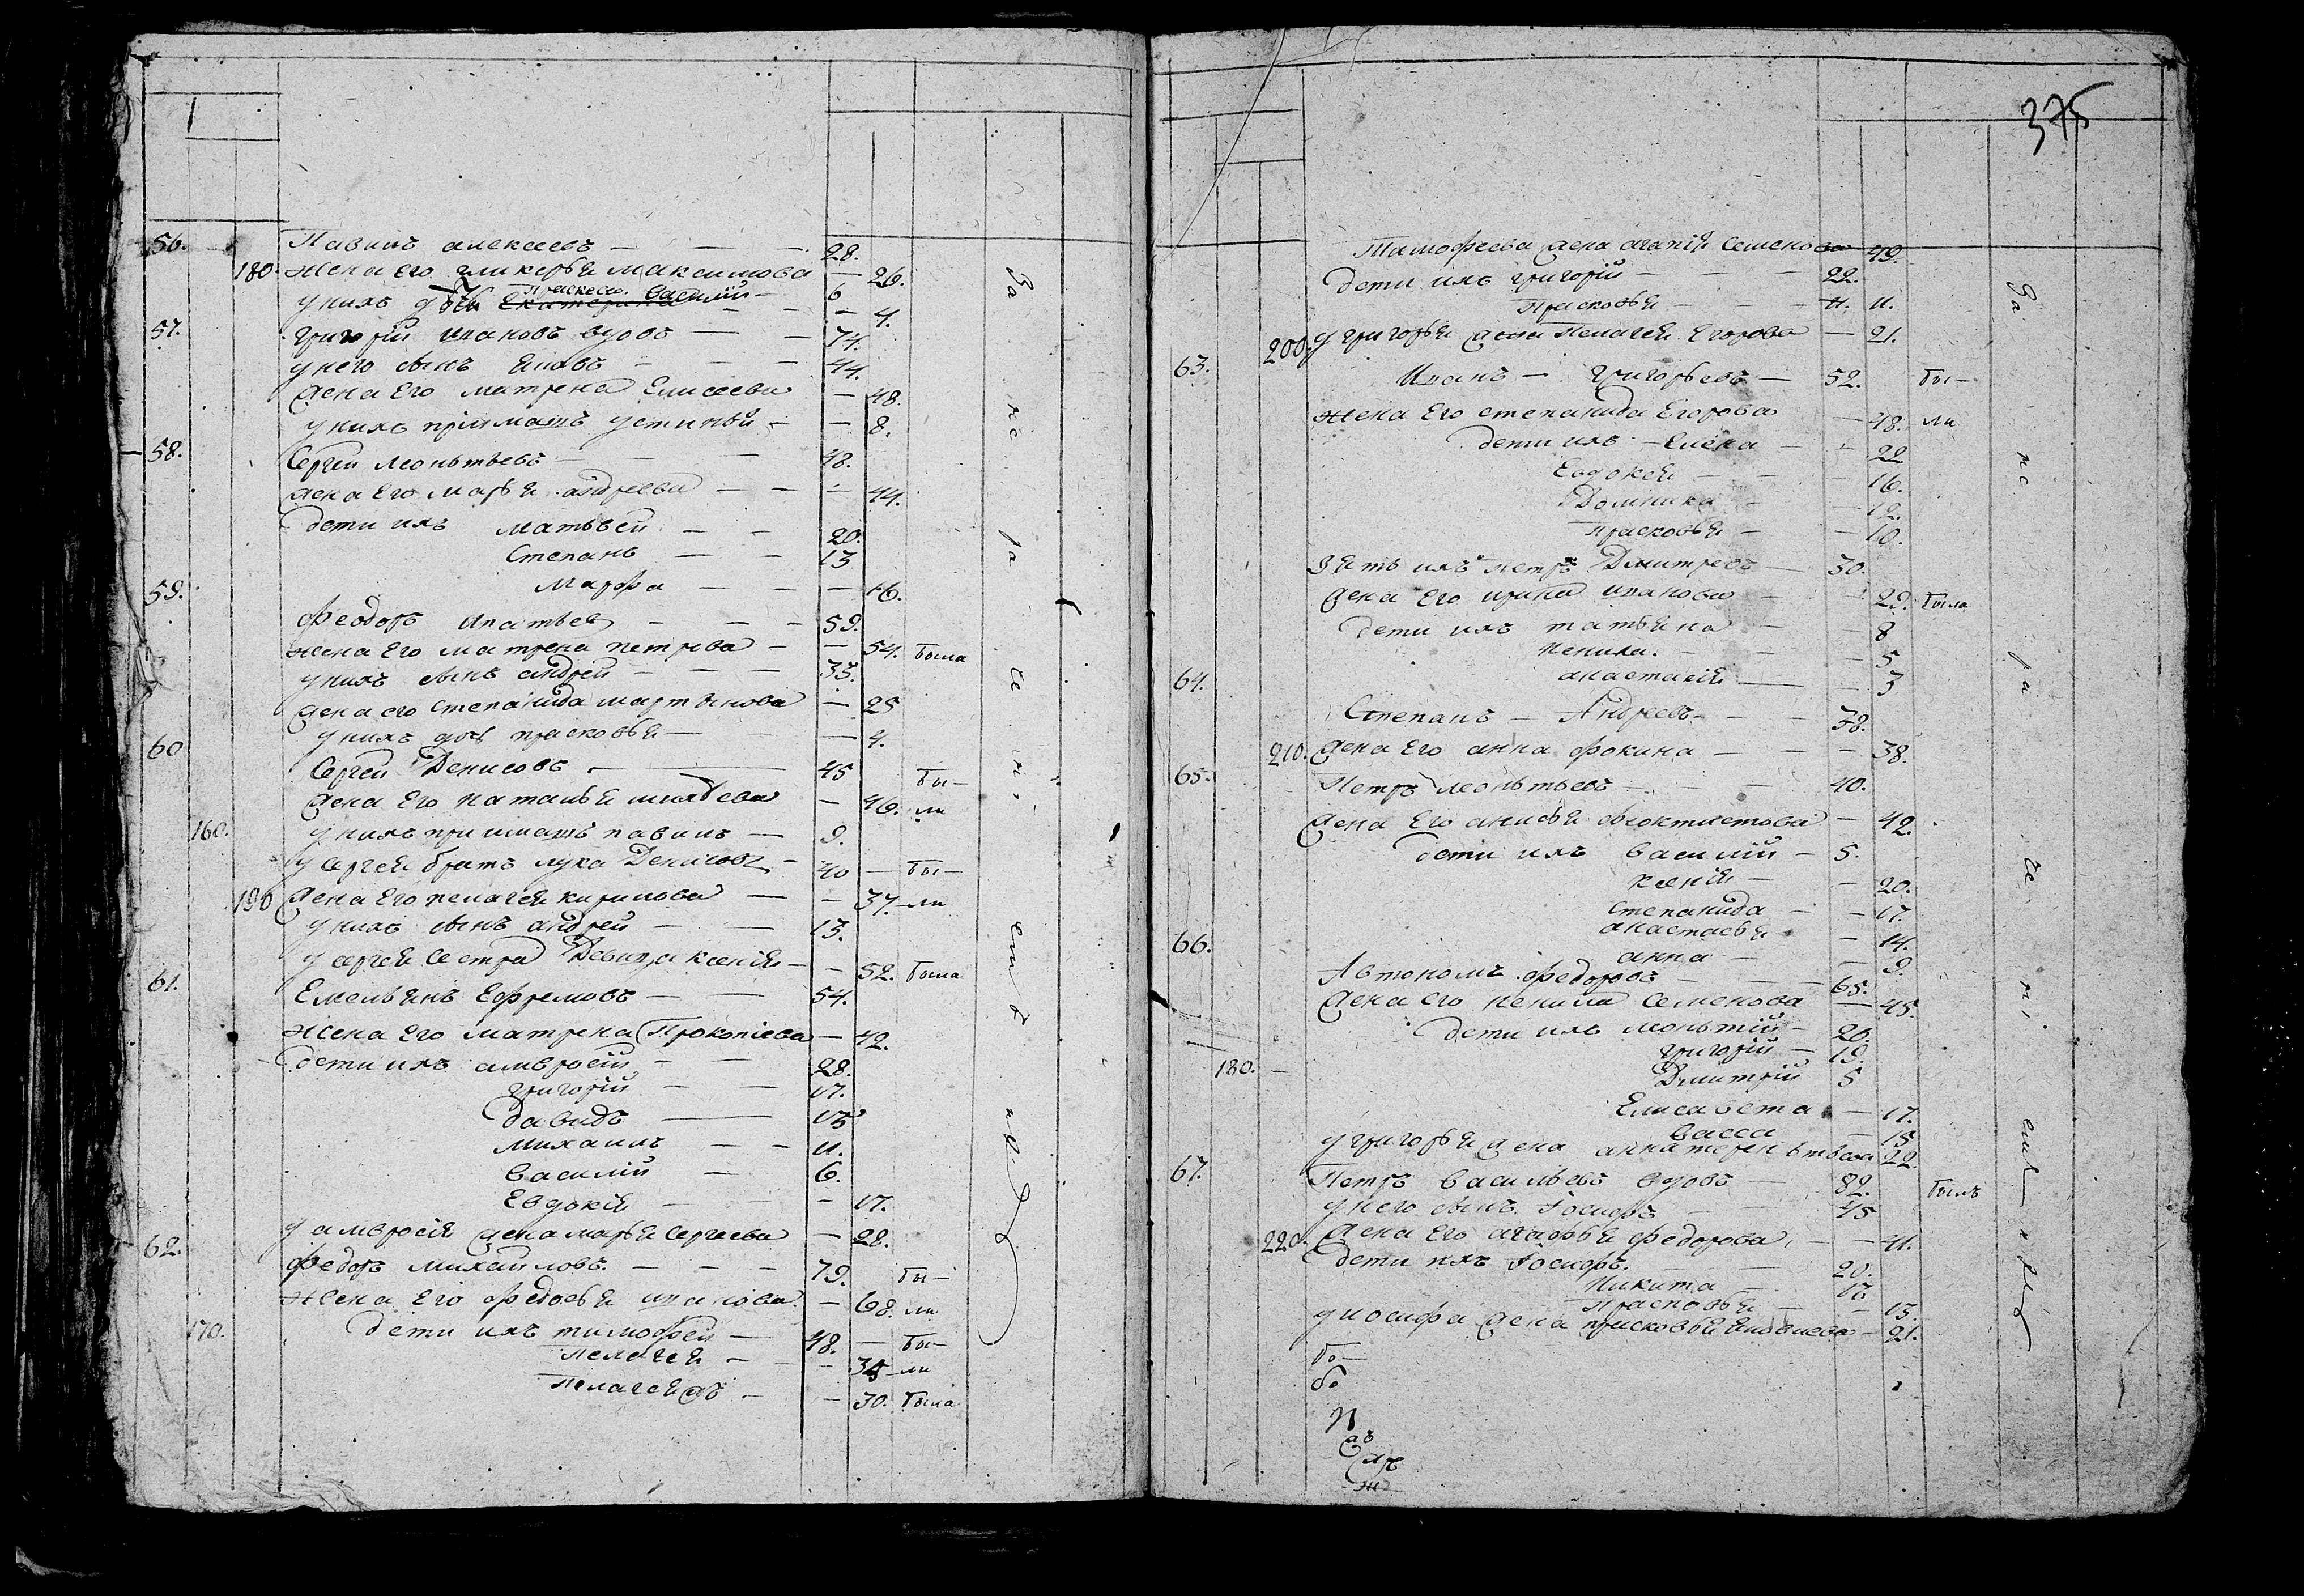 56. Павилъ алексеевъ — — 28.
180. жена его гликерья максимова — 26.
у нихъ дѣти Прасковья Василій — 6
— 4.
57. григорій ивановъ вдовъ — — 74.
у него сынъ яковъ — — 44.
жена Его матрена Елисеева — 48.
у нихъ пріимашъ устиній — — 8.
58. Сергей леонтьевъ — — 48.
жена Его марья андреева — — 44.
дети ихъ матьвей — — 20.
Степанъ — — 13
марфа — — — 16.
59. Феодоръ Ипатьев — — — 59.
жена Его матрена петрова — — 54. была
у нихъ сынъ андрей — — — 33.
жена его Степанида мартынова — 25
у нихъ дочь прасковья — — 4.
60 Сергей Денисовъ — — 45 бы—
жена Его наталья — 46. ли
160. у нихъ приимашъ павилъ — 9.
у Сергея братъ лука Денисовъ — 40 — бы—
190 жена Его пелагея кирилова — — 37. — ли
у нихъ сынъ андрей — — 13.
у сергея Сестра Девица ксенія — — 52. была
61. Емельянъ Ефремовъ — — 54.
жена Его матрена Прокопіева — 42.
дети ихъ амвросій — 28.
григорій — — 17.
давидъ — 15
михаилъ — — 11.
василій — 6.
Евдокія — — — 17.
у амвросія жена марья сергеева — 28.
62. Федоръ михайловъ. — — — 79. бы—
жена Его федосья иванова. — 68. ли
170. дети ихъ тимофей — 48. — бы—
пелагея — — 35 — ли
Пелагея жъ — — 30. была
За не ра че ні емъ
375
Тимофеева жена агапія Семенова 49.
дети ихъ григорій — — — 22.
Прасковья — — — 11.
200. у григорья жена Пелагея Егорова — 21.
63. Иванъ — григорьевъ — 52. бы—
жена Его степанида Егорова — 48. ли
дети ихъ — Елена — 22
Евдокея — — — 16.
Домника — — 12.
прасковья — — 10.
зять ихъ петръ Дмитревъ — 30.
жена Его ирина иванова — — 29. была
дети ихъ татьяна — — 8
Ненила. — — — 5
анастасія — — 3
64. Степанъ — Андреевъ — — 38.
210. жена Его анна фокина — — — 38.
65. Петръ леонтьевъ — — — 40.
жена Его анисья феоктистова — 42.
дети ихъ василій — 5.
ксенія — — 20.
Степанида — — 17.
анастасья — 14.
анна — — 9.
66. Автономъ федоровъ — — — 65.
жена его ненила семенова — 45.
дети ихъ леонтій — 26.
григорій — 19.
180. — Дмитрій 5
Елисавета — 17.
васса — 15
у григорья жена анна терентьева 22.
67. Петръ васильевъ вдовъ — 82. былъ
у него сынъ Іосифъ — — 45
220. жена Его агафья федорова, — — 41.
дети ихъ Іосифъ. — 20.
Никита — 17.
прасковья — — 13.
у иосифа жена прасковья яковлева — 21.
За не ра че ні емъ